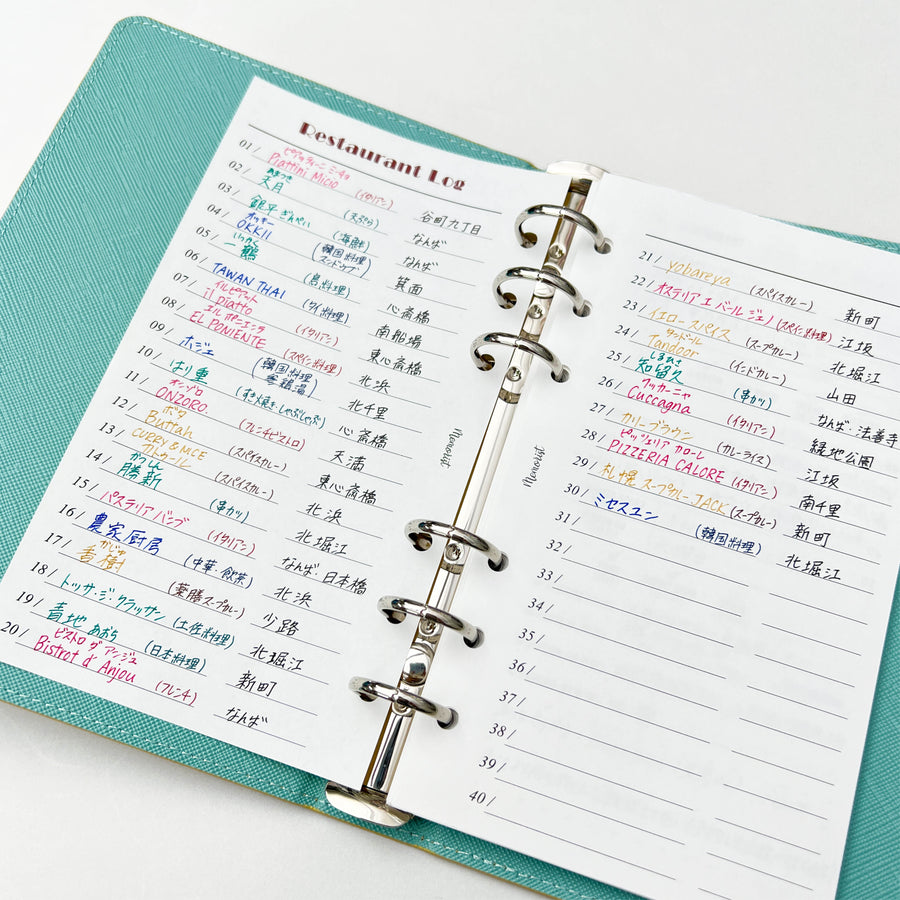 Restaurant Log
01 / ピアッティーニ ミーチョ
Piattini Micio (イタリアン) 谷町九丁目
02 / あまつき
天月 (天ぷら) なんば
03 / 銀平 ぎんぺい (海鮮) なんば
04 / オッキー
OKKII (韓国料理 スンドゥブ) 箕面
05 / いっかく
一鶴 (鳥料理) 心斎橋
06 / TAWAN THAI (タイ料理) 南船場
07 / イルピアット
il piatto (イタリアン) 東心斎橋
08 / エル ポニエンテ
EL PONIENTE (スペイン料理) 北浜
09 / ホジェ (韓国料理 参鶏湯) 北千里
10 / はり重 (すき焼き・しゃぶしゃぶ) 心斎橋
11 / オンゾロ
ONZORO (フレンチビストロ) 天満
12 / ボタ
Buttah (スパイスカレー) 東心斎橋
13 / CURRY & RICE
(スパイスカレー) 北浜
14 / かつしん
勝新 (串カツ) 北堀江
15 / パステリア バンブ (イタリアン) なんば・日本橋
16 / 農家厨房 (中華・飲茶) 北浜
17 / かじゅ
香樹 (薬膳スープカレー) 少路
18 / トッサ・ジ・クラッサン (土佐料理) 北堀江
19 / 青地 あおち (日本料理) 新町
20 / ビストロ ダ アンジュ
Bistrot d'Anjou (フレンチ) なんば
Memorist
Memorist
21 / yobareya (スパイスカレー) 新町
22 / オステリア エ バール ジェノ (スペイン料理) 江坂
23 / イエロー スパイス (スープカレー) 北堀江
24 / タンドール
Tandoor (インドカレー) 山田
25 / しるひさ
知留久 (串カツ) なんば・法善寺
26 / クッカーニャ
Cuccagna (イタリアン) 緑地公園
27 / カリーブラウン (カレーライス) 江坂
28 / ピッツェリア カローレ
PIZZERIA CALORE (イタリアン) 南千里
29 / 札幌 スープカリー JACK (スープカレー) 新町
30 / ミセスユン (韓国料理) 北堀江
31 /
32 /
33 /
34 /
35 /
36 /
37 /
38 /
39 /
40 /